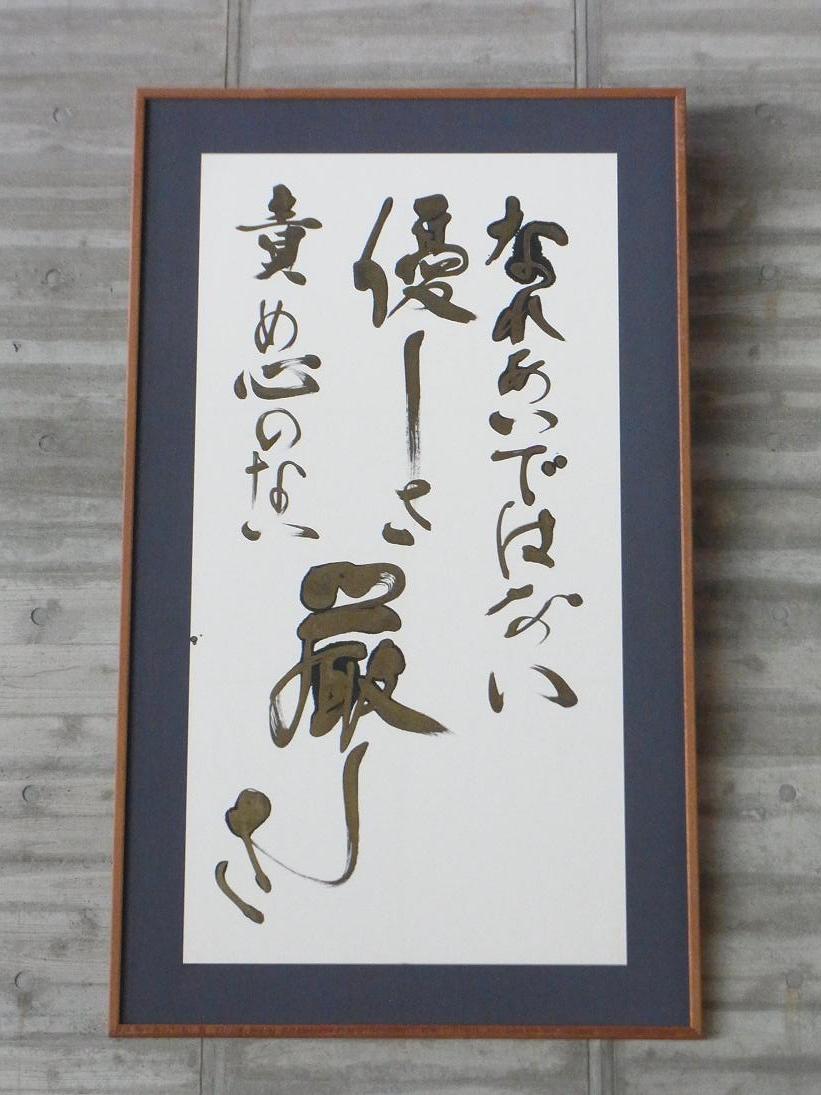 なれあいではない
優しさ
責め心のない
厳しさ